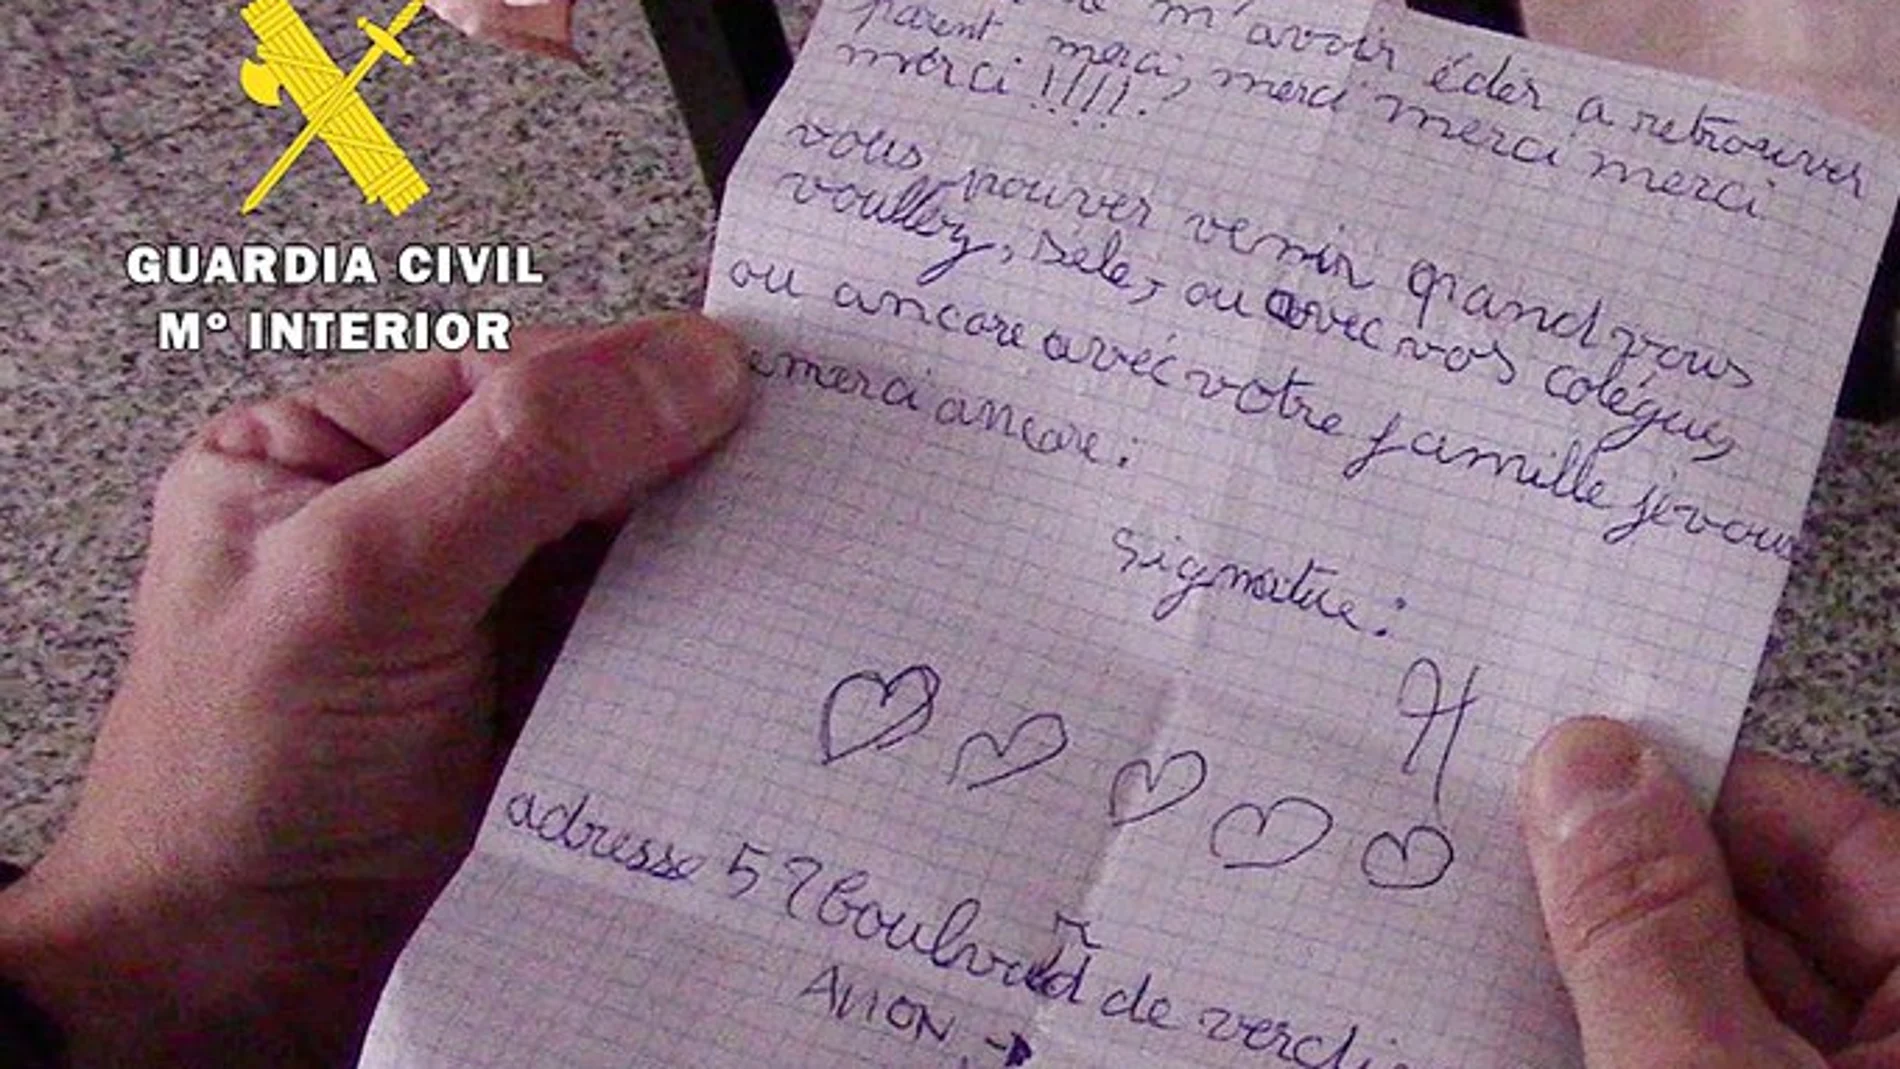 GUARDIA CIVIL
Mº INTERIOR
m'avoir éder a retrouver
parent merci, merci merci merci merci
merci !!!!!
vous pouver venir quand vous
voulley, sele, ou avec vos colégues,
ou ancore avec votre famille je vous
emerci ancore :
Signatue :
H
adresse 57 boulvard de verdi
AVION